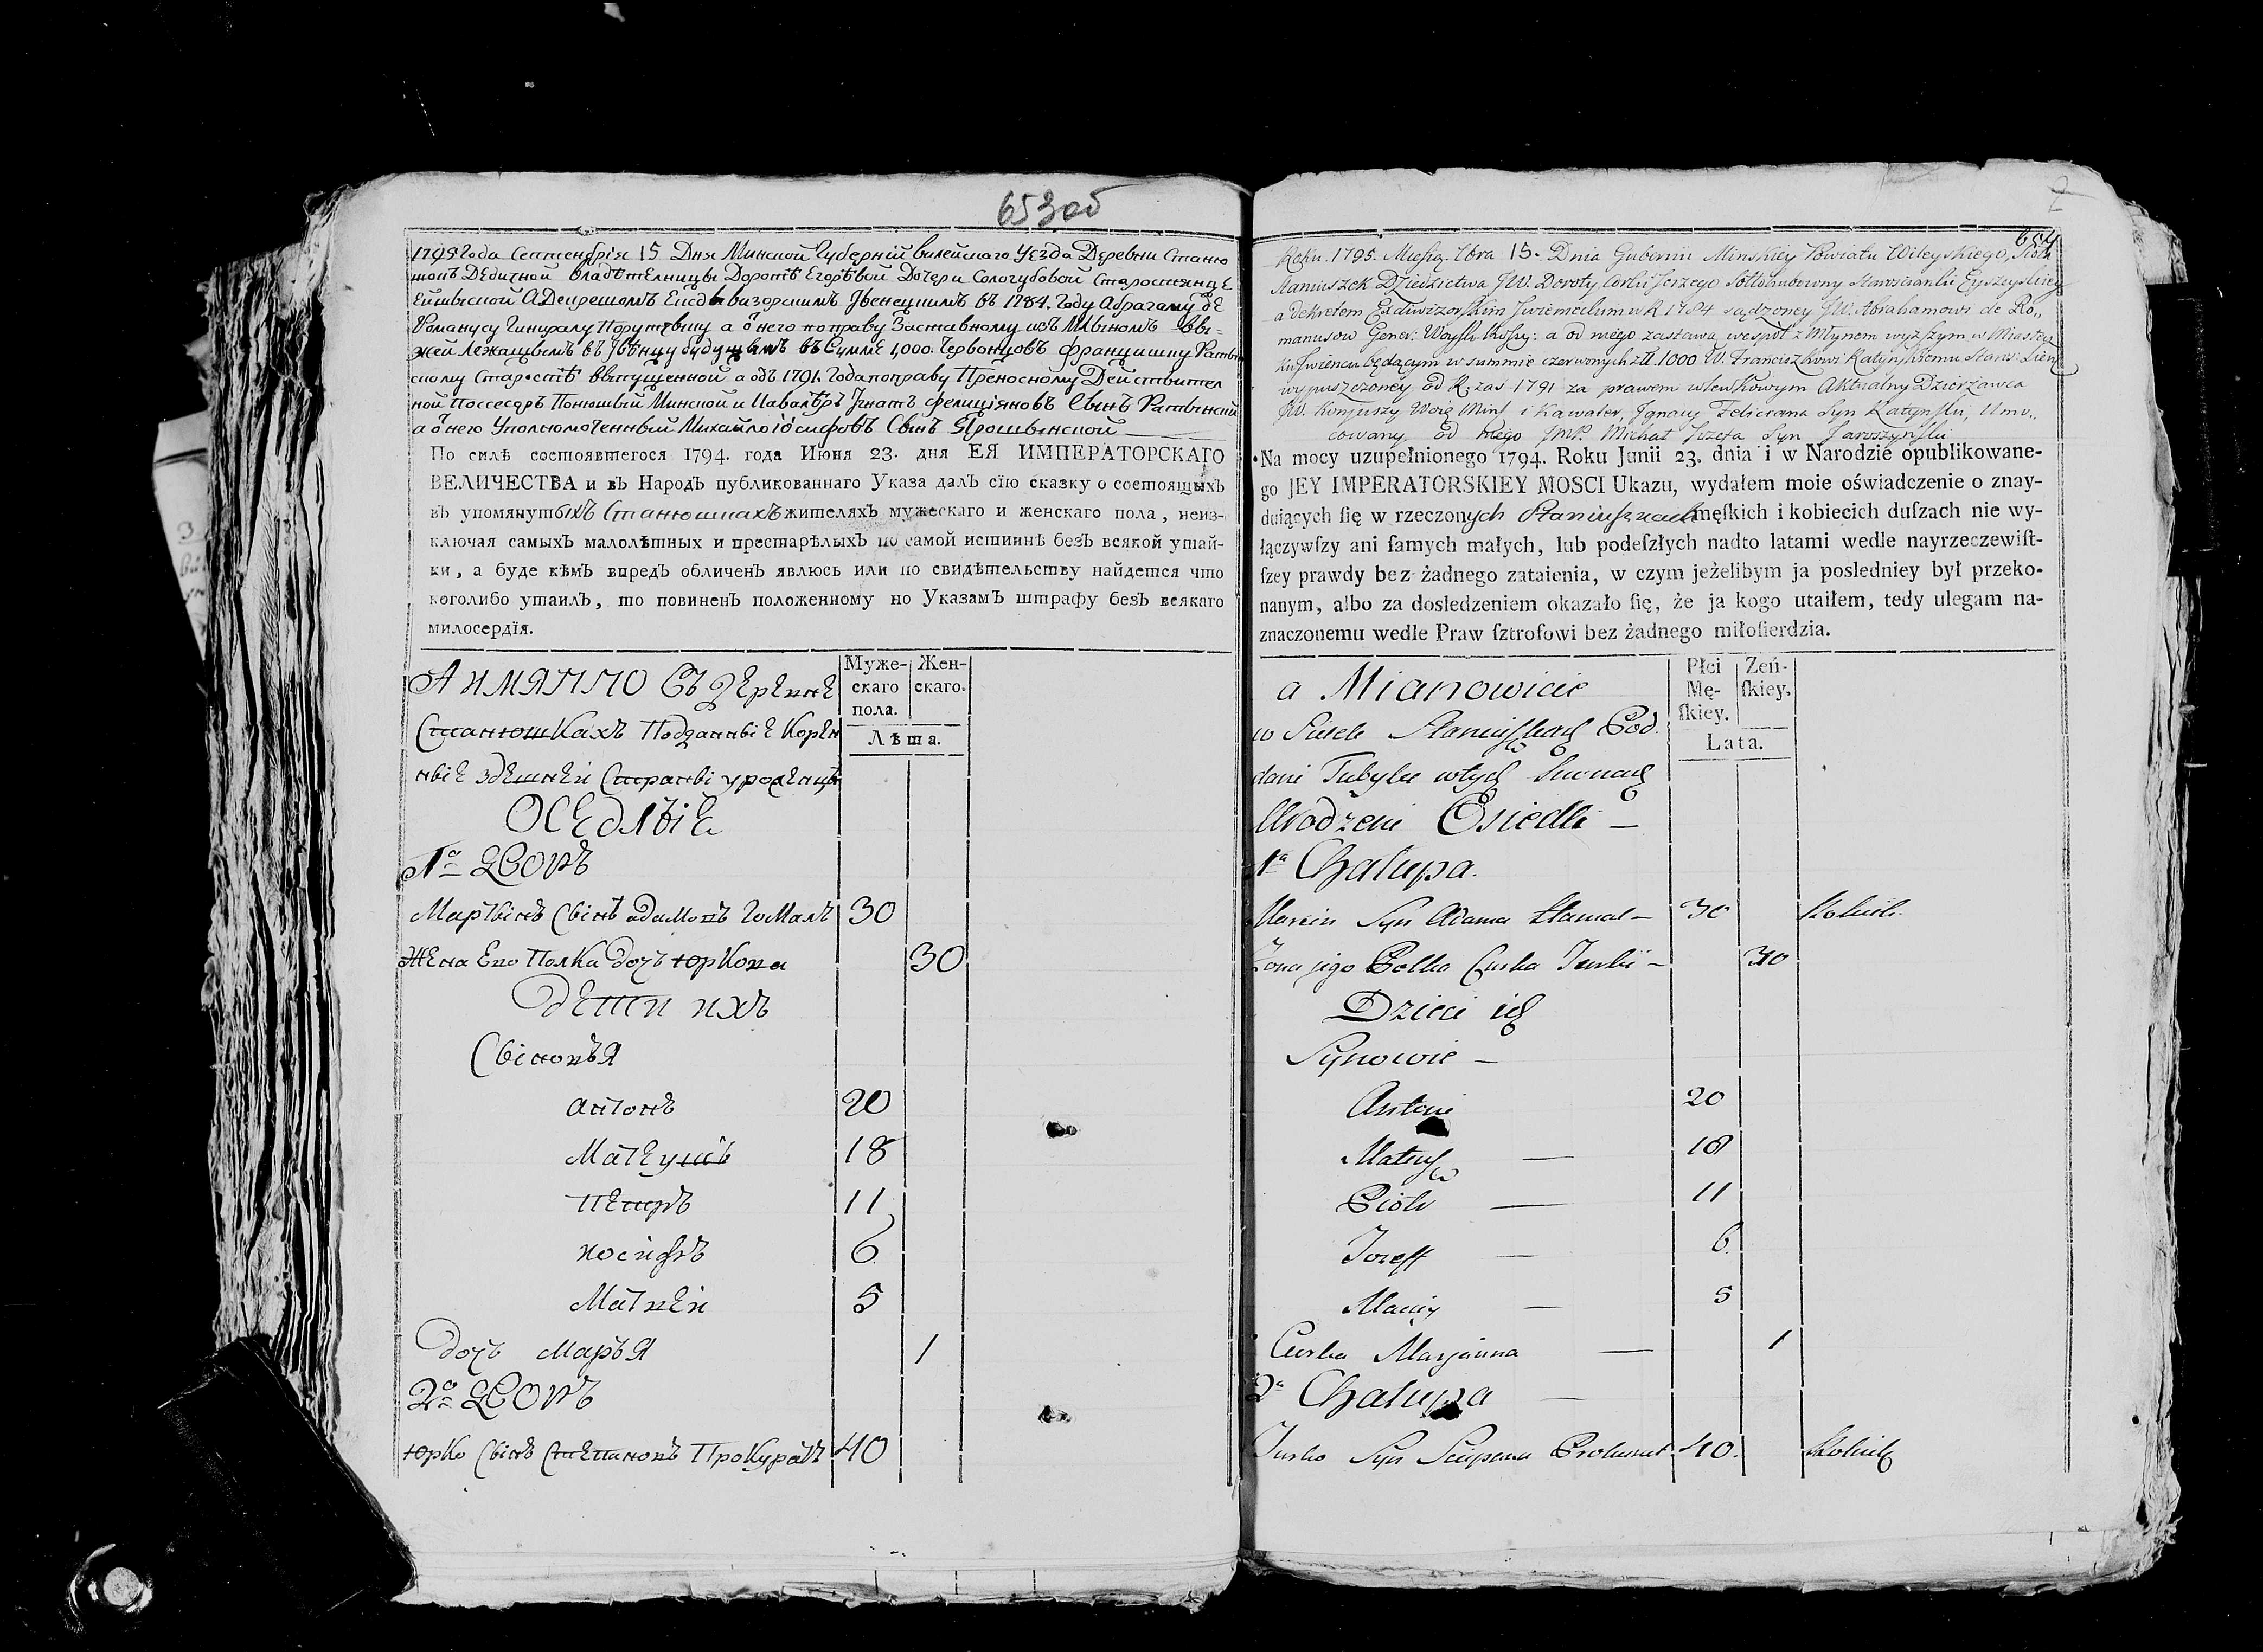 653об
1795 Года Септембрія 15 Дня Минской Губерній вилейскаго Уезда Деревни Станю
шокъ Дедичной владѣтелницы Доротѣ Егорѣвой Дочери Сологубовой Старостянце
Ейшиской А Декретомъ Ексдывизорскимъ Івенецкимъ въ 1784. Году Абрагаму де
Романусу Гиниралу Порутчику а ő него поправу Заставному изъ Млыномъ вы=
жей Лежащымъ въ Івѣнцу будущымъ въ Сумме 1,000. Червонцовъ Францишку Раты
скому Старостѣ выпущенной а одъ 1791. Года поправу Преносному Действител
ной Поссесоръ Конюшый Минской и Кавалѣръ Ігнатъ фелиціяновъ Сынъ Ратынский
а ő него Уполномоченный Михайло іосифовъ Сынъ Ярошынской
По силѣ состоявшегося 1794. года Июня 23. дня ЕЯ ИМПЕРАТОРСКАГО
ВЕЛИЧЕСТВА и въ Народъ публикованнаго Указа далъ сїю сказку о состоящихъ
въ упомянутыхъ Станюшкахъ жителяхъ мужескаго и женскаго пола, неиз-
ключая самыхъ малолѣтныхъ и престарѣлыхъ по самой истиннѣ безъ всякой утай-
ки, а буде кѣмъ впредъ обличенъ явлюсь или по свидѣтельству найдется что
коголибо утаилъ, то повиненъ положенному по Указамъ штрафу безъ всякаго
милосердїя.
А ИМЯННО Въ Деревне
Станюшкахъ Подданные Корен
ные здешней Страны уроденцы
Оседлые
Муже-
скаго
пола.
Жен-
скаго.
Лѣта.
1а Дворъ
Мартынъ Сынъ адамовъ Гомалъ 30
Жена Его Полка дочь юркова 30
Дети ихъ
Сыновья
антонъ 20
Матеушъ 18
Петръ 11
иосифъ 6
Матвей 5
дочь Марья 1
2а Дворъ
юрко Сынъ Степановъ Прокуратъ 40
2
654
Roku. 1795. Miesią. 7bra 15. Dnia Gubernii Minskiey Powiatu Wileyskiego, Sioła
Staniuszek Dziedzictwa JW. Doroty Corki Jerzego Sołłohubowny Starościanki Eyszyskiey
a dekretem Exdiwizorskim Iwienieckim w R 1784 sądzoney JW. Abrahamowi de Ro,,
manusow Gener: Woysk Rossy: a od niego zastawą wespoł z Młynem wyższym w Miastecz
ku Iwiencu będącym w summie czerwonych złł. 1000 W. Franciszkowi Ratyńskiemu Staro:
wypuszczoney od R. zaś 1791 za prawem wlewkowym Aktualny Dzierżawca
JW. Koniuszy Wdzt Minł i Kawaler, Ignacy Feliciana Syn Ratyński, Umo,,
cowany od niego JMP. Michał Jozefa Syn Jaroszyński
Na mocy uzupełnionego 1794. Roku Junii 23. dnia i w Narodzie opublikowane-
go JEY IMPERATORSKIEY MOSCI Ukazu, wydałem moie oświadczenie o znay-
duiących ſię w rzeczonych Staniuszkach męſkich i kobiecich duſzach nie wy-
łączywſzy ani ſamych małych, lub podeſzłych nadto latami wedle nayrzeczewiſt-
ſzey prawdy bez żadnego zataienia, w czym jeżelibym ja posledniey był przeko-
nanym, albo za dosledzeniem okazało ſię, że ja kogo utaiłem, tedy ulegam na-
znaczonemu wedle Praw ſztrofowi bez żadnego miłoſierdzia.
a Mianowicie
w Siele Staniuszkach Pod
dani Tubylce w tych Stronach
Urodzeni Osiedli —
Płci
Mę-
ſkiey.
Żeń-
ſkiey.
Lata.
1a Chałupa.
Marcin Syn Adama Hamał — 30 Rolnik.
Żona jego Polka Curka Jurki — 30
Dzieci ich
Synowie —
Antoni 20
Mateusz — 18
Piotr — 11
Jozeff — 6
Maciey — 5
Curka Marjanna — 1
2a Chałupa —
Jurko Syn Sciepana Prokurat 40. Rolnik